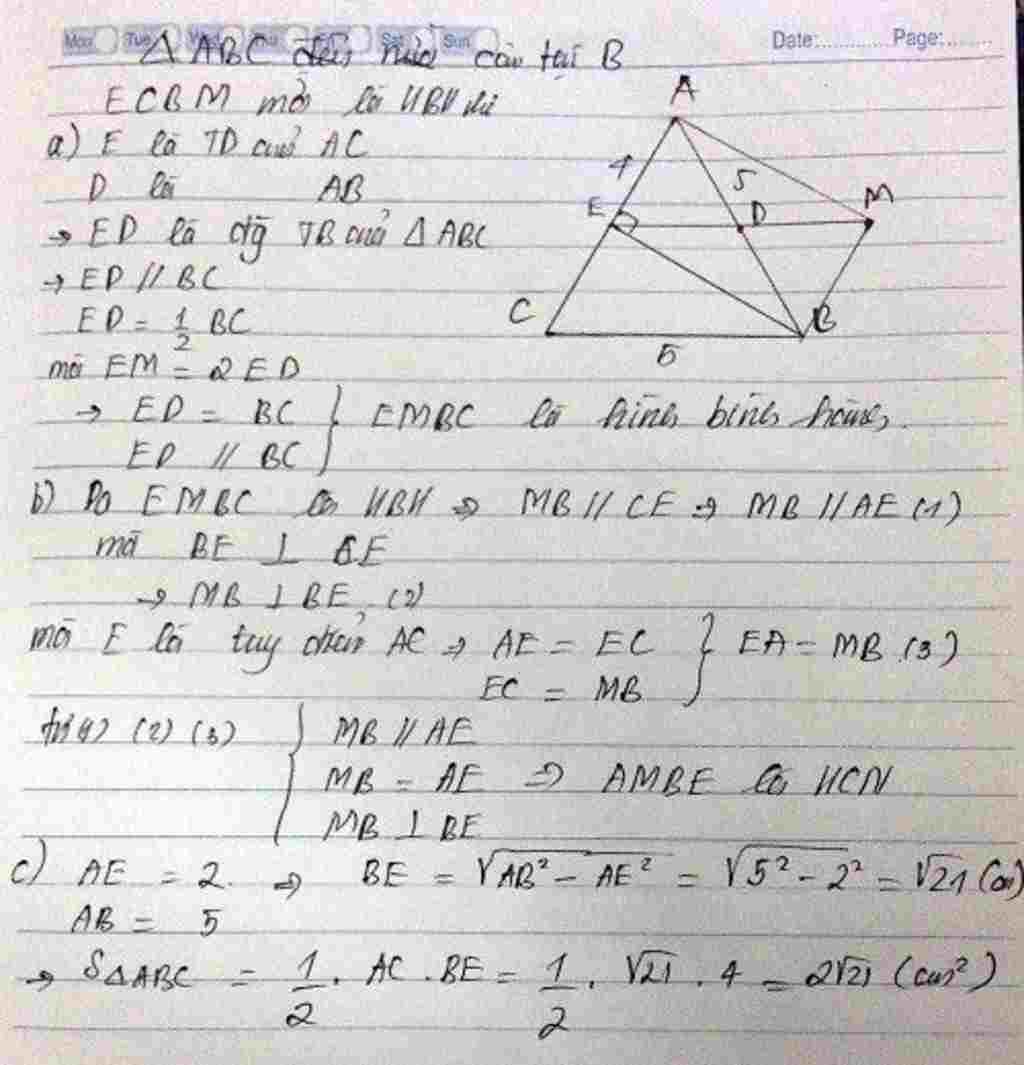 Mon Tue Wed Thu Fri Sat Sun Date:............ Page:........
Δ ABC cân tại B
ECBM mới là HBH
a) E là TD của AC
D là AB
→ ED là đg TB của Δ ABC
→ ED // BC
ED = 1/2 BC
mà EM = 2 ED
→ ED = BC } EMBC là hình bình hành.
ED // BC
b) Do EMBC là HBH ⇒ MB // CE ⇒ MB // AE (1)
mà BE ⊥ CE
→ MB ⊥ BE (2)
mà E là AC ⇒ AE = EC } EA = MB (3)
EC = MB
từ (1) (2) (3) { MB // AE
MB = AE ⇒ AMBE là HCN
MB ⊥ BE
c) AE = 2 ⇒ BE = √(AB² - AE²) = √(5² - 2²) = √21 (cm)
AB = 5
→ SΔABC = 1/2 . AC . BE = 1/2 . √21 . 4 = 2√21 (cm²)
A
4
5
E
D
M
C
B
5